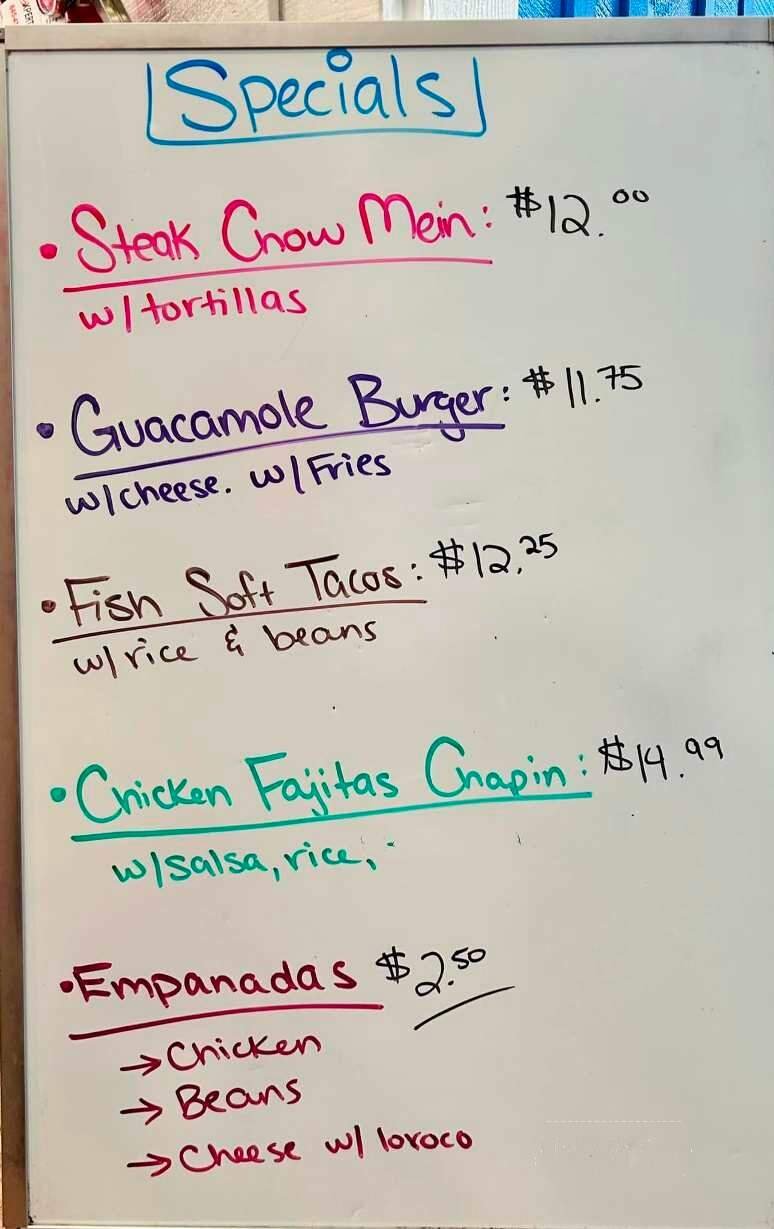 Specials
• Steak Chow Mein: $12.00
w/tortillas
• Guacamole Burger: $11.75
w/cheese. w/Fries
• Fish Soft Tacos: $12.25
w/rice & beans
• Chicken Fajitas Chapin: $14.99
w/salsa, rice,
• Empanadas $2.50
→ Chicken
→ Beans
→ Cheese w/ loroco